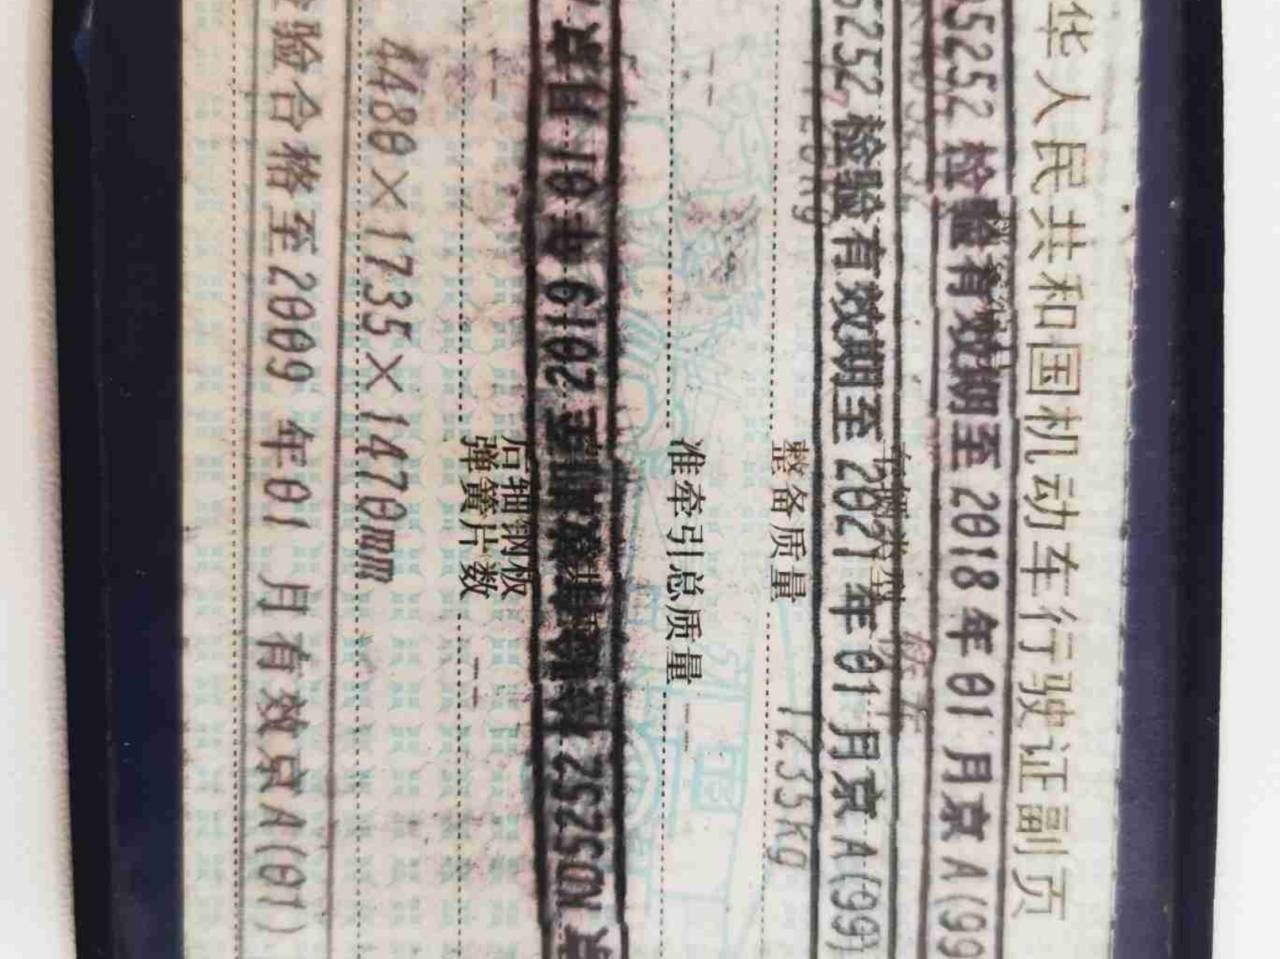 华人民共和国机动车行驶证副页
5252 检验有效期至 2018 年 01 月京 A(99
5252 检验有效期至 2021 年 01 月京 A(99)
整备质量 1235kg
准牵引总质量 --
京 ND5252 检验有效期至 2019 年 01 月京
后轴钢板
弹簧片数 --
4480×1735×1470mm
验合格至2009 年01 月有效京A(01)